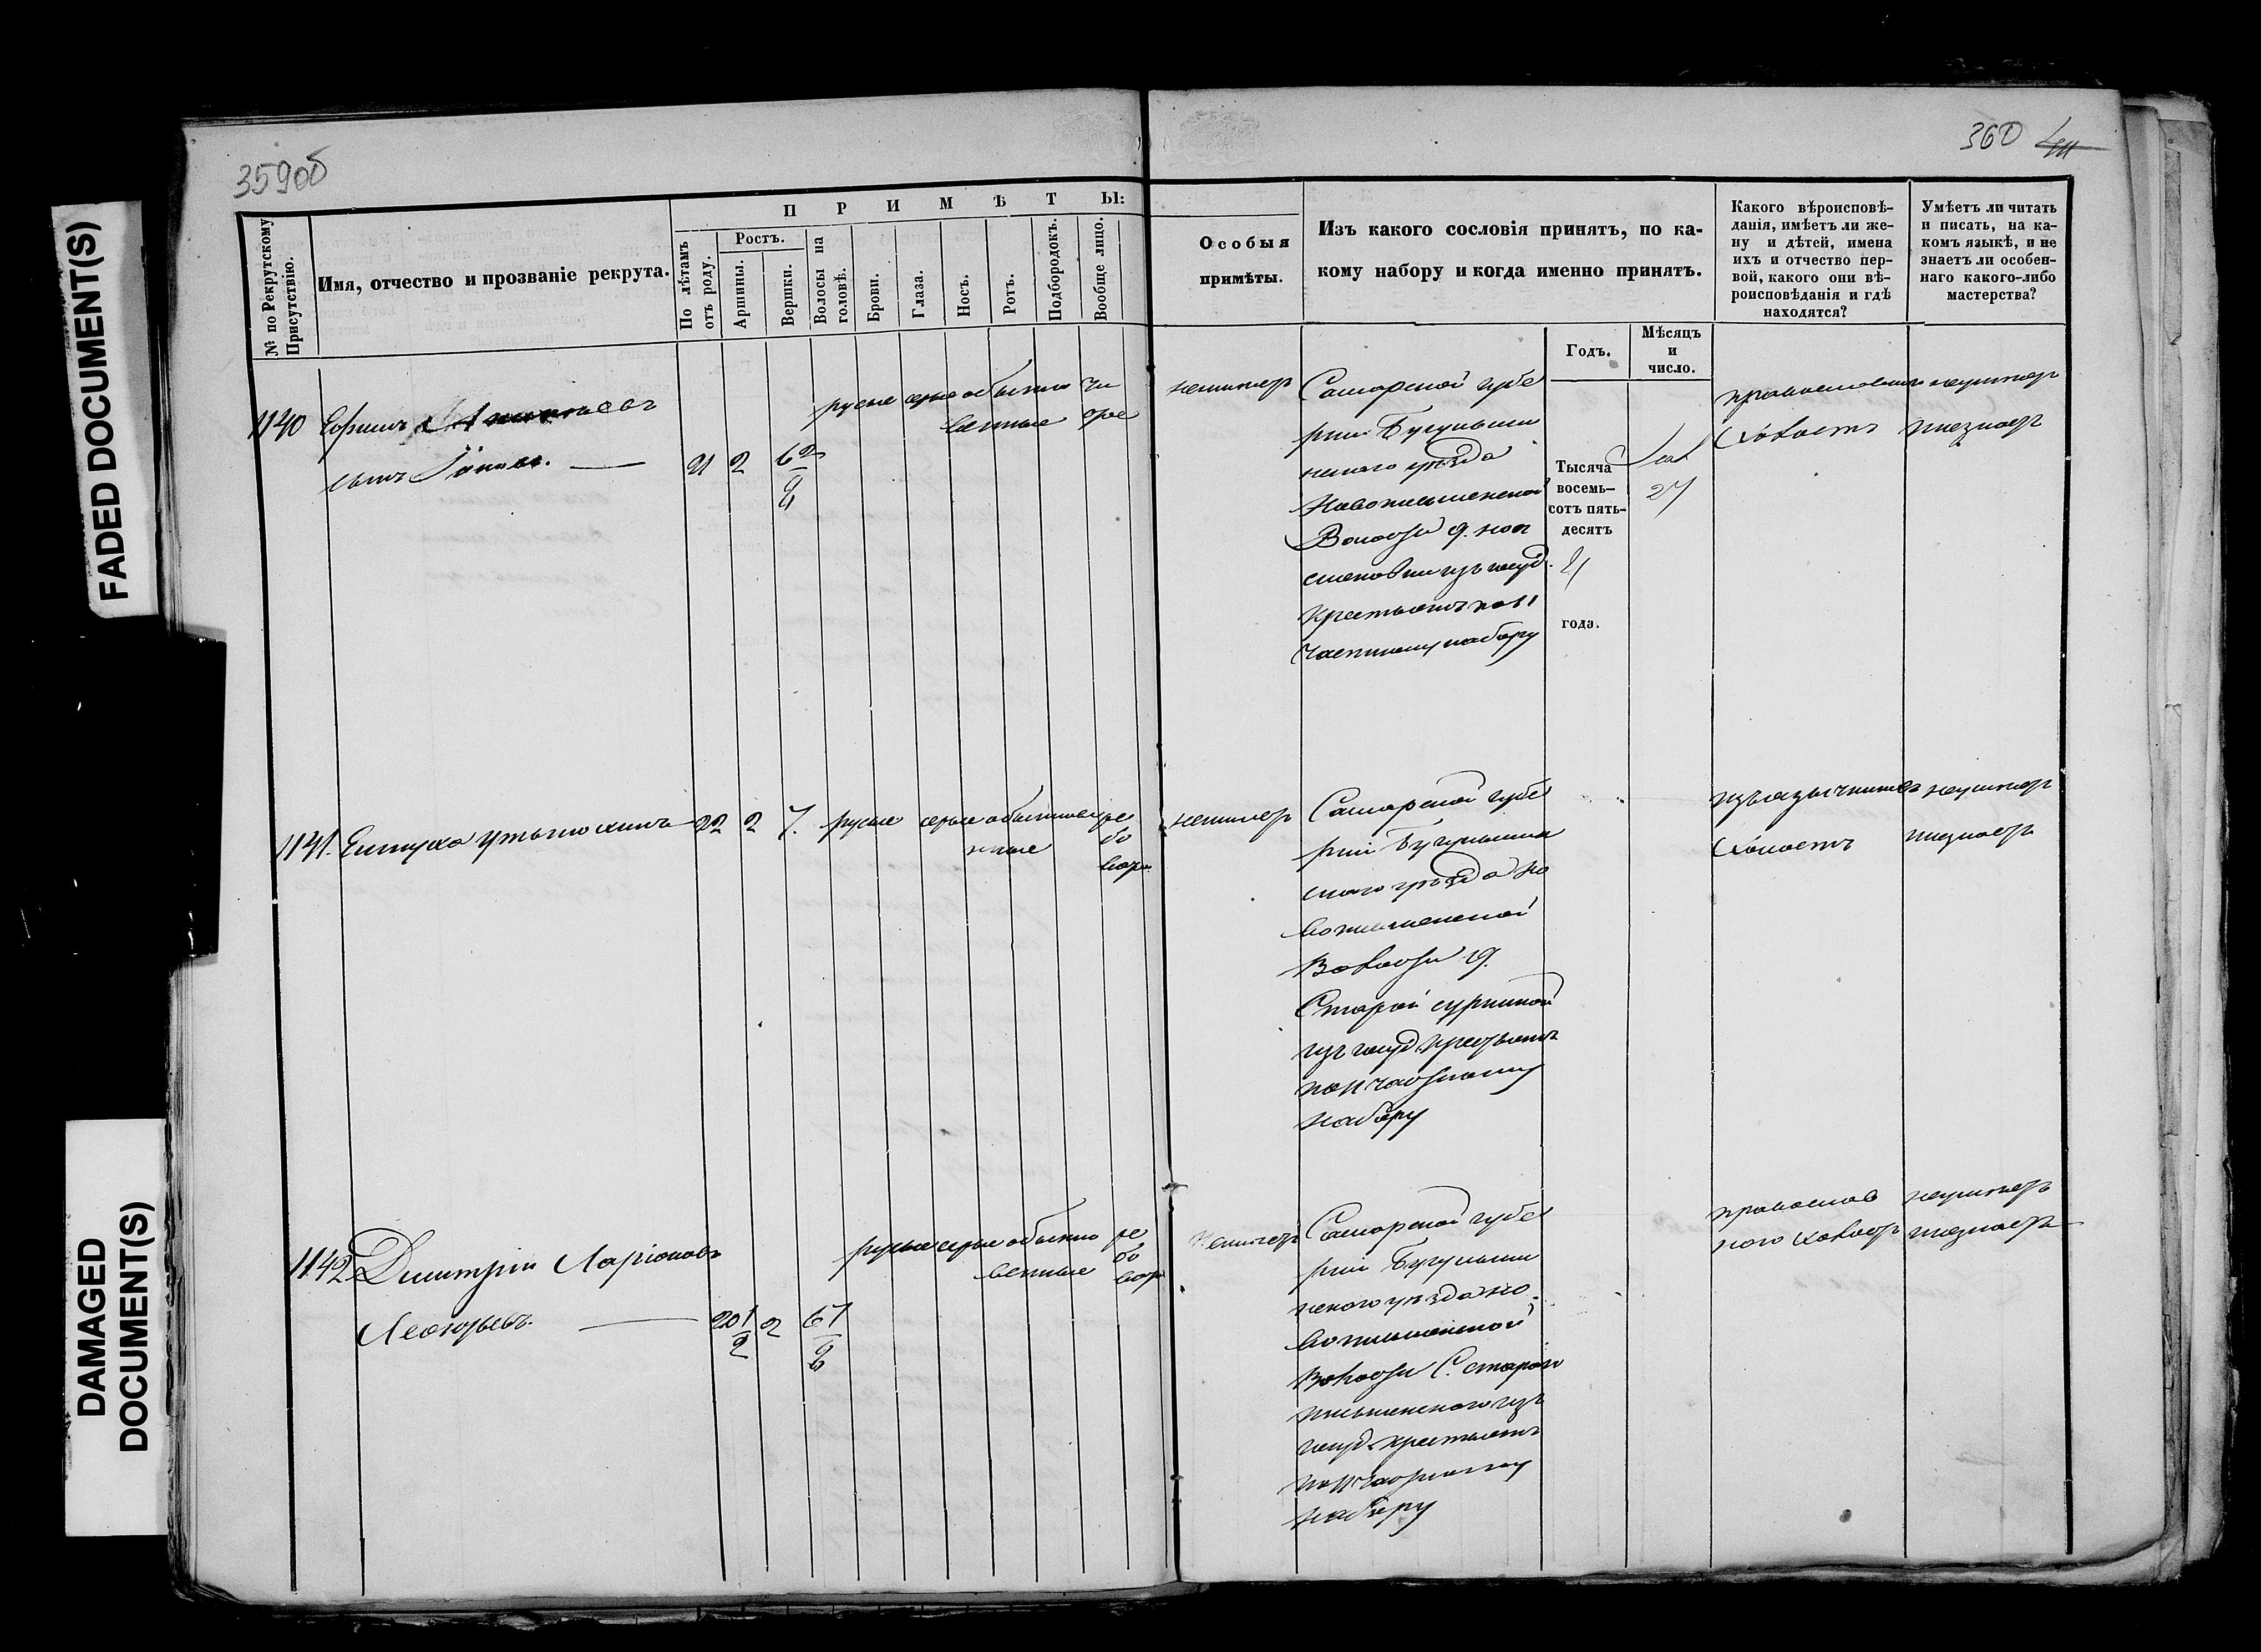 FADED DOCUMENT(S)
DAMAGED
DOCUMENT(S)
359об
360
№ по Рекрутскому
Присутствію.
Имя, отчество и прозваніе рекрута.
ПРИМѢТЫ:
По лѣтамъ
отъ роду.
Ростъ.
Аршины.
Вершки.
Волосы на
головѣ.
Брови.
Глаза.
Носъ.
Ротъ.
Подбородокъ.
Вообще лицо.
Особыя
примѣты.
Изъ какого сословія принятъ, по ка-
кому набору и когда именно принятъ.
Годъ.
Мѣсяцъ
и
число.
Какого вѣроисповѣ-
данія, имѣетъ ли же-
ну и дѣтей, имена
ихъ и отчество пер-
вой, какого они вѣ-
роисповѣданія и гдѣ
находятся?
Умѣетъ ли читать
и писать, на ка-
комъ языкѣ, и не
знаетъ ли особен-
наго какого-либо
мастерства?
1140
Ефимъ
сынъ
21 2 6 2/8
русые сѣрые обыкно
венные
чи
стое
неимѣетъ
Самарской губе
рніи Бугульмин
скаго уѣзда
Новописьменской
Волости д.
изъ госуд.
Крестьянъ по 11
частному набору
Тысяча
восемь-
сотъ пять-
десятъ
4
года.
27
православнаго
Холостъ
неумѣетъ
незнаетъ
1141.
22 2 7.
русые сѣрые обыкновен
ные
ря
бо
вато
неимѣетъ
Самарской губе
рніи Бугульмин
скаго уѣзда Но
вописьменской
Волости д.
Старой
изъ госуд. крестьянъ
по 11 частному
набору
изъ язычниковъ
Холостъ
неумѣетъ
незнаетъ
1142
Димитрій Ларіоновъ
Леонтьевъ.
20 1/2 2 6 1/8
русые сѣрые обыкно
венные
ря
бо
вато
Неимѣетъ
Самарской губе
рніи Бугульмин
скаго уѣзда Но
вописьменской
Волости С. Старо
письменскаго изъ
госуд. крестьянъ
по 11 частному
набору
православ
наго холостъ
неумѣетъ
незнаетъ